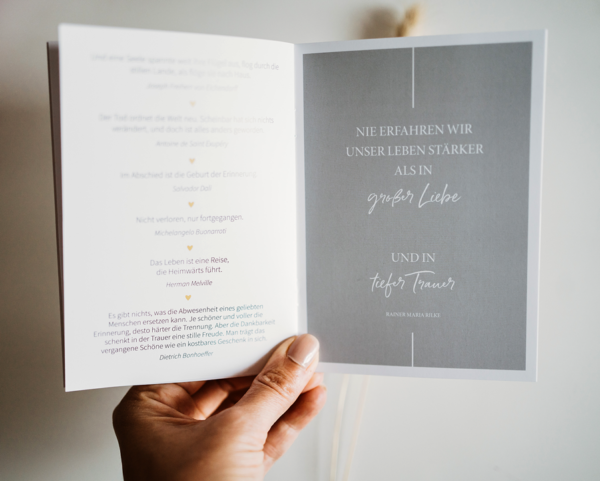 Und eine Seele spannte weit ihre Flügel aus, flog durch die
stillen Lande, als flöge sie nach Haus.
Joseph Freiherr von Eichendorff
Der Tod ordnet die Welt neu. Scheinbar hat sich nichts
verändert, und doch ist alles anders geworden.
Antoine de Saint-Exupéry
Im Abschied ist die Geburt der Erinnerung.
Salvador Dalí
Nicht verloren, nur fortgegangen.
Michelangelo Buonarroti
Das Leben ist eine Reise,
die Heimwärts führt.
Herman Melville
Es gibt nichts, was die Abwesenheit eines geliebten
Menschen ersetzen kann. Je schöner und voller die
Erinnerung, desto härter die Trennung. Aber die Dankbarkeit
schenkt in der Trauer eine stille Freude. Man trägt das
vergangene Schöne wie ein kostbares Geschenk in sich.
Dietrich Bonhoeffer
NIE ERFAHREN WIR
UNSER LEBEN STÄRKER
ALS IN
großer Liebe
UND IN
tiefer Trauer
RAINER MARIA RILKE